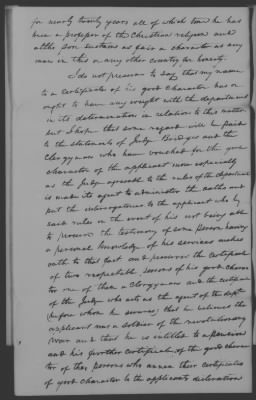 for nearly twenty years all of which time he has
been a professor of the Christian religion and
still sustains as fair a character as any
man in this or any other country for honesty.
I do not presume to say that my name
to a certificate of his good character has or
ought to have any weight with the department
in its determination in relation to this matter
but I hope that some regard will be paid
to the statements of Judge and the
Clergyman who have vouched for the good
character of the applicant more especially
as the Judge agreeable to the rules of the department
is made its agent to administer the oaths and
put the interrogatories to the applicant who by
said rules in the event of his not being able
to procure the testimony of some person having
a personal knowledge of his services makes
oath to that fact and procures the certificate
of two respectable persons of his good character
one of them a Clergyman and the certificate
of the Judge who acts as the agent of the dept
(before whom he swears) that he believes the
applicant was a soldier of the revolutionary
War and that he is entitled to a pension
and his further certificate of the good charac
ter of these persons who annex their certificates
of good character to the applicants declaration